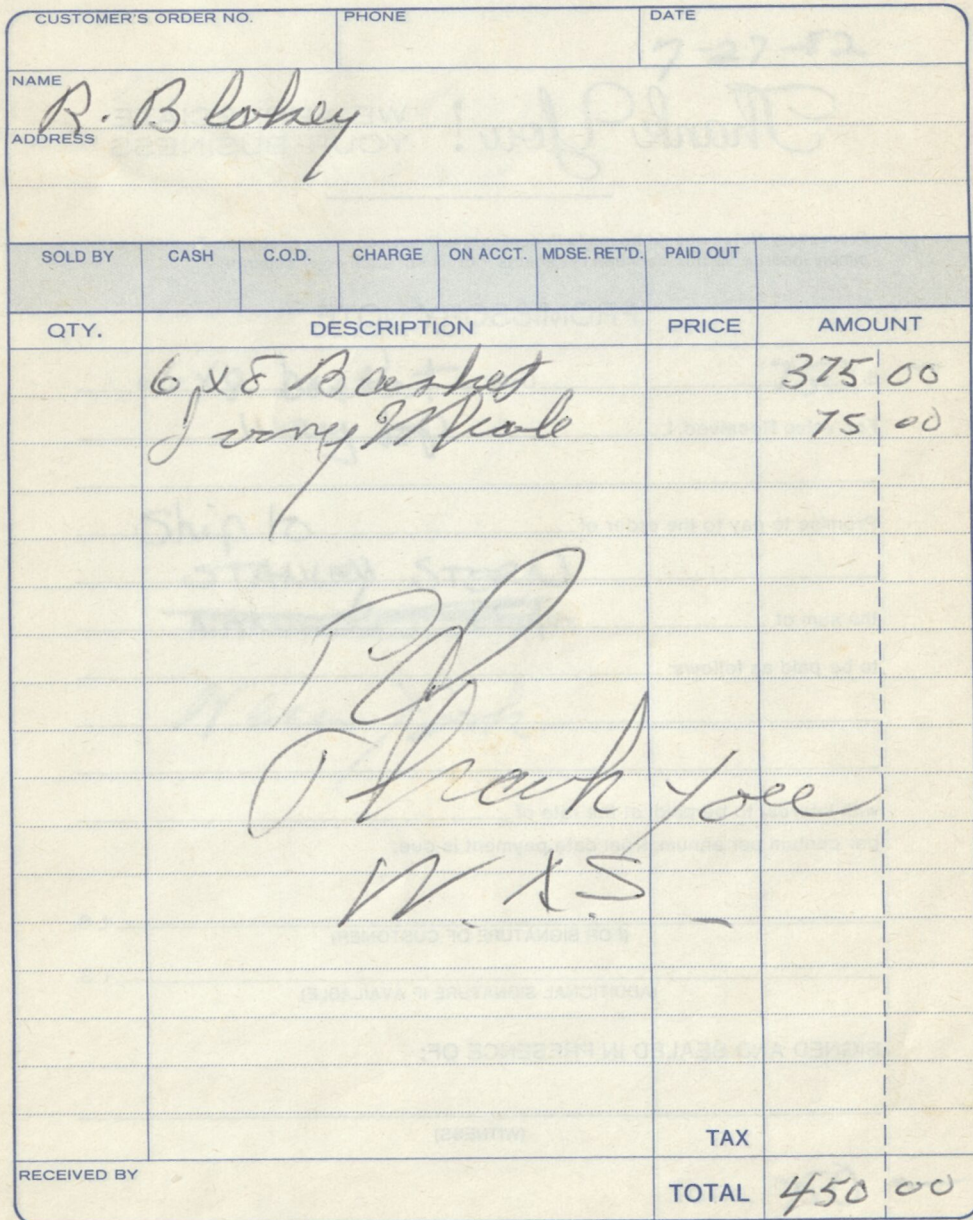 CUSTOMER'S ORDER NO. PHONE DATE
7-27-82
NAME R. Blakey
ADDRESS
SOLD BY CASH C.O.D. CHARGE ON ACCT. MDSE. RET'D. PAID OUT
QTY. DESCRIPTION PRICE AMOUNT
6 x 8 Basket 375 00
Ivory Whale 75 00
Pd
Thank you
W. S.
TAX
RECEIVED BY
TOTAL 450 00